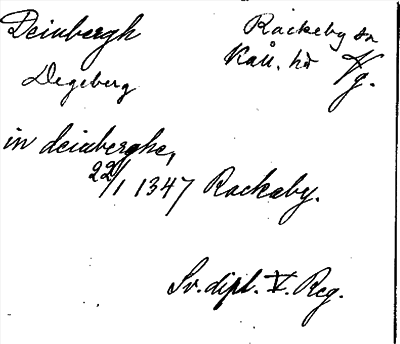 Deinbergh Råckeby sn
Degeberg Kåll. hd Vg.
in deinberghe,
22/1 1347 Rackaby.
Sv. dipl. V. Reg.